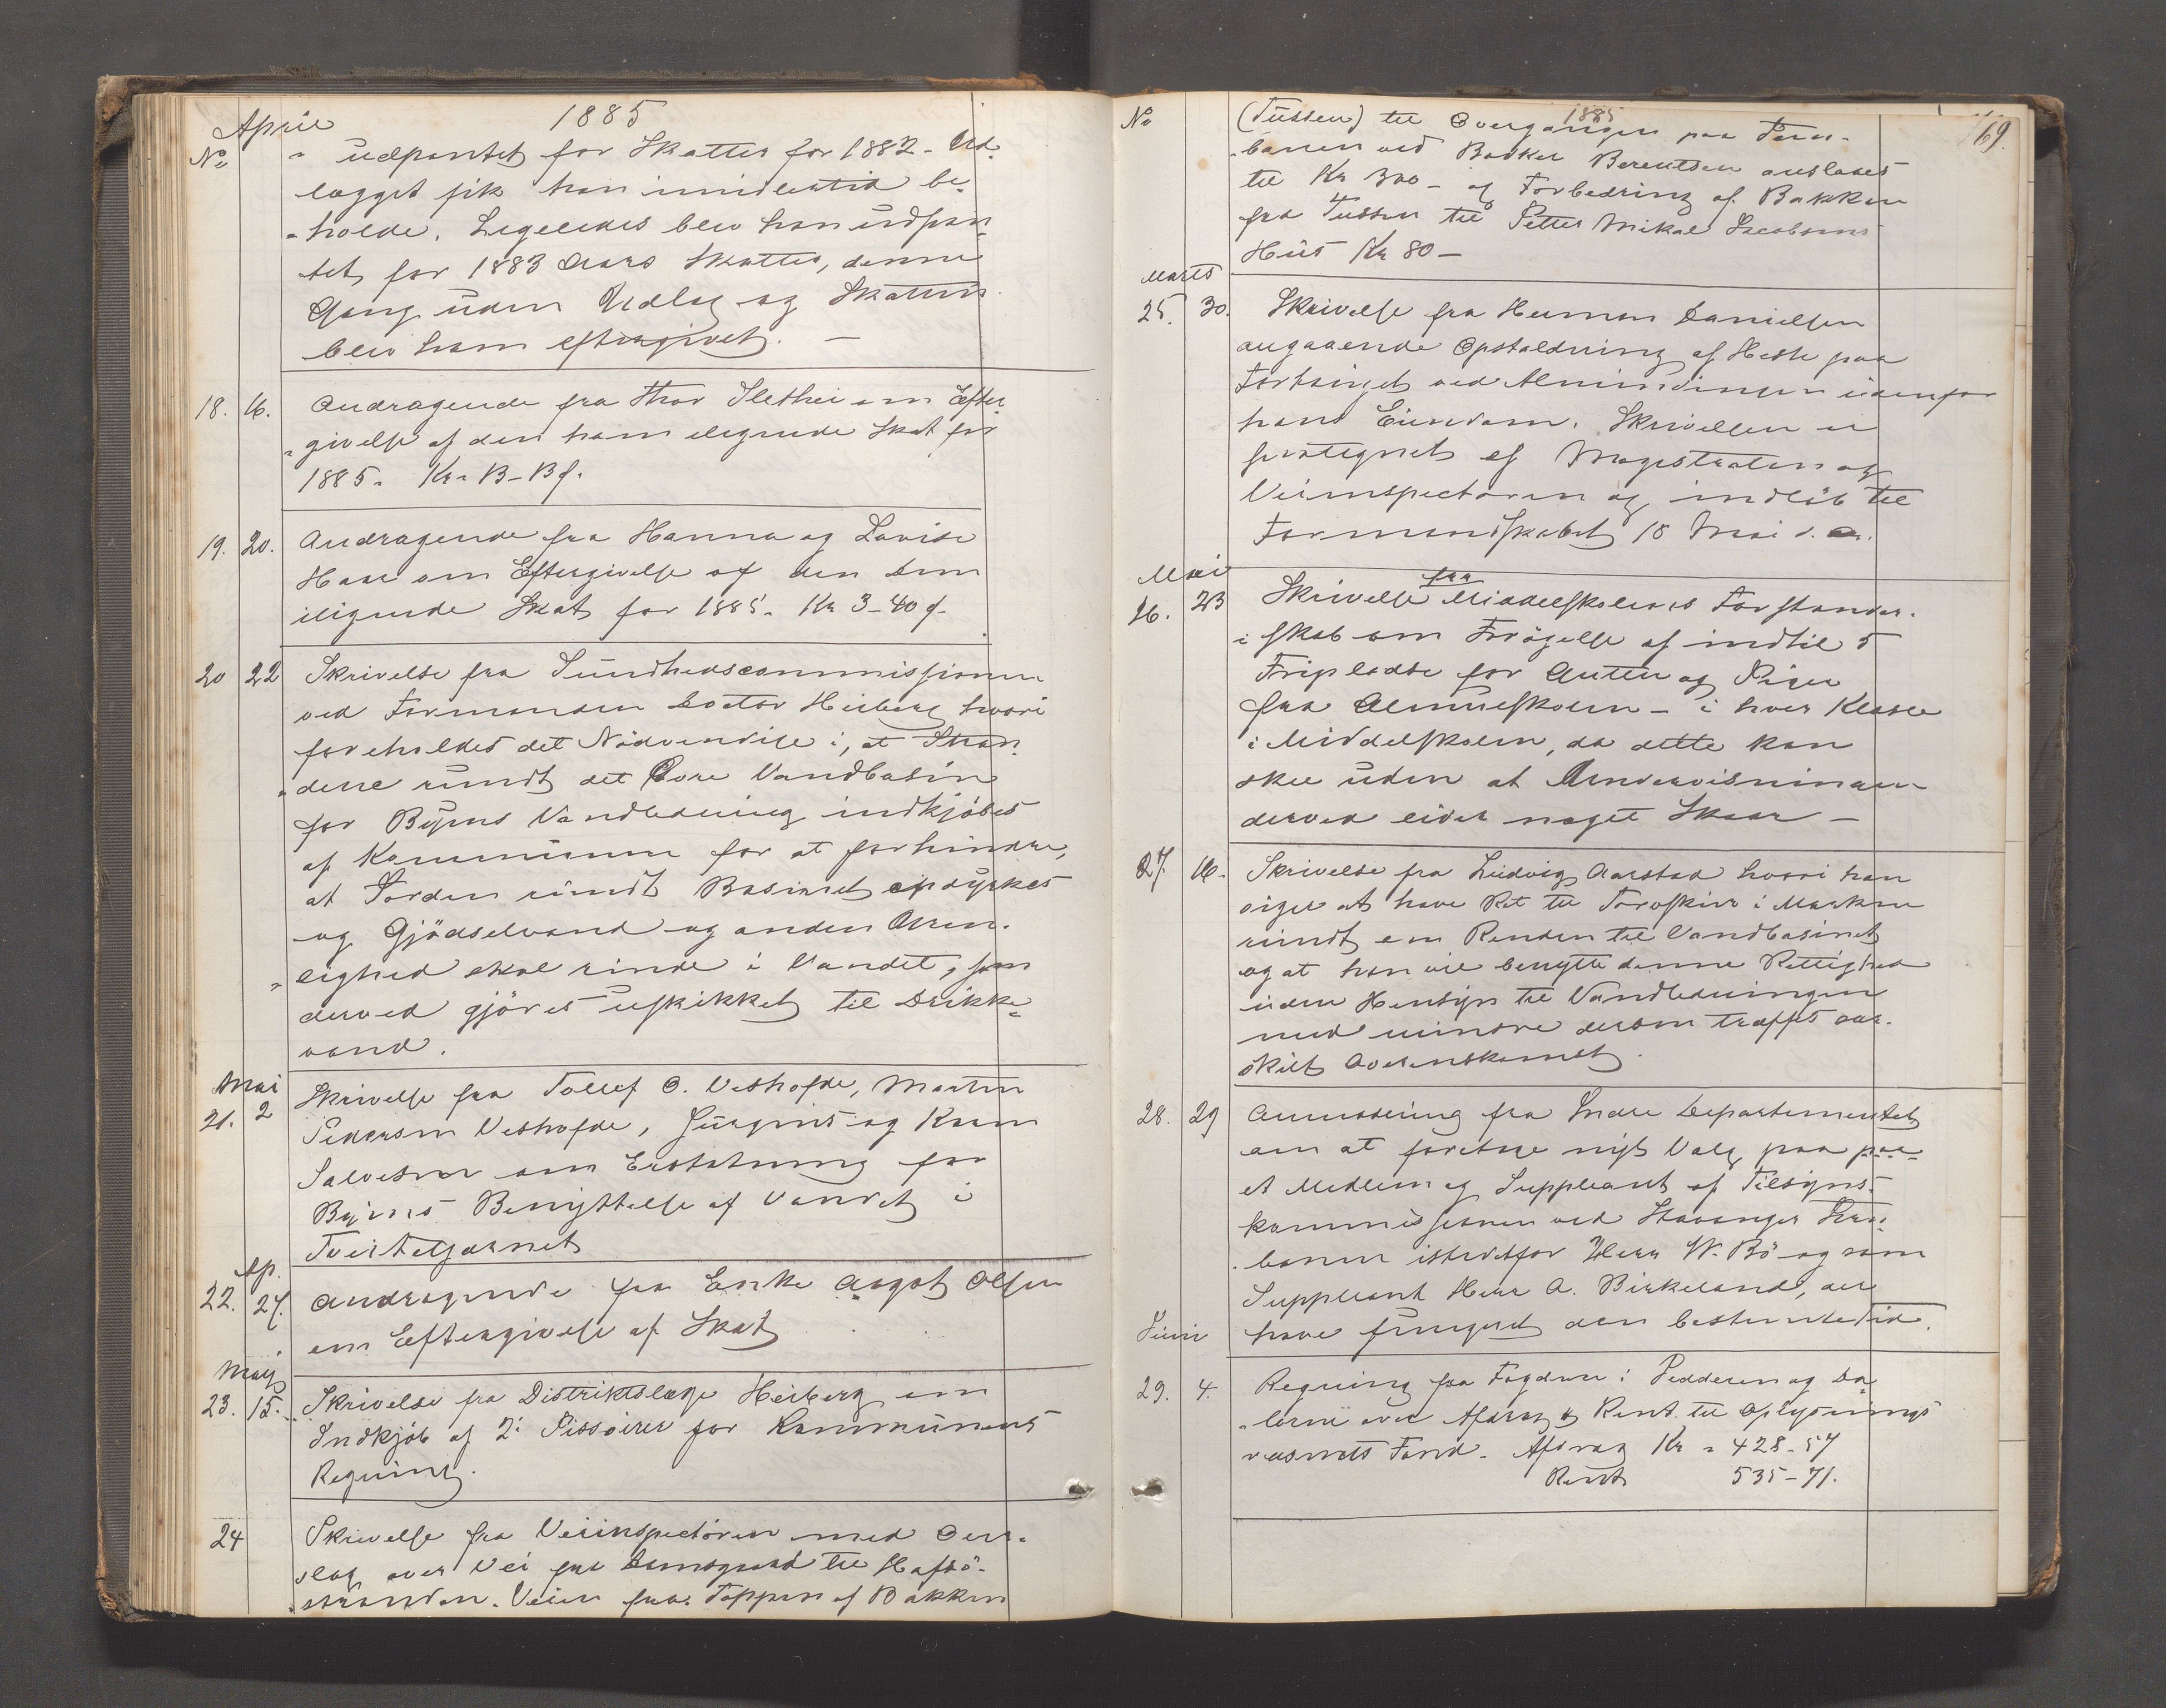 April 1885
No
" udpantet for Skatter for 1882 - Ud-
lægget fik han imidlertid be-
"holde. Ligeledes blev han udpan-
tet for 1883 Aars Skatter, denne
Gang uden Udlæg og Skatten
blev ham eftergivet. —
18. 16. Andragende fra Thor Slethei om Efter-
"givelse af den ham ilignede Skat for
1885.
19. 20. Andragende fra Hanna og Lovise
Haar om Eftergivelse af den dem
ilignede Skat for 1885. Kr 3-40 ø.
20 22 Skrivelse fra Sundhedscommissionen
ved Formanden Doctor Heiberg hvori
foreholdes det Nødvendige i, at Stran-
"dene rundt det Øvre Vandbasin
for Byens Vandledning indkjøbes
af Kommunen for at forhindre,
at Jorden rundt Basinet opdyrkes
og Gjødselvand og anden Uren-
"lighed skal rinde i Vandet, som
derved gjøres uskikket til Drikke-
vand.
Mai
21. 2 Skrivelse fra Tollef O. Veshofde, Martin
Pedersen Veshofde, Jürgens og Karen
Salvesen om Erstatning for
Byens Benyttelse af Vandet i
Tveitetjernet
Ap.
22. 27. Andragende fra Enke Aagot Olsen
om Eftergivelse af Skat
Maj
23. 15. Skrivelse fra Distriktslæge Heiberg om
Indkjøb af 2: Pissoirer for Kommunens
Regning.
24 Skrivelse fra Veiinspectøren med Over-
slag over Vei fra Damsgaard til Hafsø-
"stranden. Veien fra Toppen af Bakken
169.
1885
No
(Tussen) til Overgangen paa Jern-
"banen ved Bødker Berentsen ansløaes
til Kr 300 - og Forbedring af Bakken
fra Tussen til Petter Mikal Jacobsens
Hus Kr 80 —
Marts
25. 30. Skrivelse fra Herman Danielsen
angaaende Opstaldning af Heste paa
Fortauget ved Almindingen udenfor
hans Eiendom. Skrivelsen er
paategnet af Magistraten og
Veiinspectøren og indløb til
Formandskabet 18 Mai d. A.
Mai
26. 23 Skrivelse fra Middelskolens Forstander-
"skab om Forøgelse af indtil 5
Fripladse for Gutter og Piger
fra Almueskolen - i hver Klasse
i Middelskolen, da dette kan
skee uden at Undervisningen
derved lider noget Skaar —
27. 16. Skrivelse fra Ludvig Aarstad hvori han
siger at have Ret til Torvskjær i Marken
rundt om Renden til Vandbasinet
og at han vil benytte denne Rettighed
uden Hensyn til Vandledningen
med mindre dersom træffes sær-
skilt Overenskomst.
28. 29 Anmodning fra Indre Departementet
om at foretage nyt Valg paa
et Medlem og Suppleant af Tilsyns-
kommissionen ved Stavanger Jern-
"banen istedetfor Herr W. Bø og som
Suppleant Herr A. Birkeland, der
have fungeret den bestemte Tid.
Juni
29. 4. Regning fra Fogden i Jedderen og Da-
"lerne over Afdrag og Rent. til Oplysnings
væsnets Fond. Afdrag Kr " 428-57
Rent 535-71.